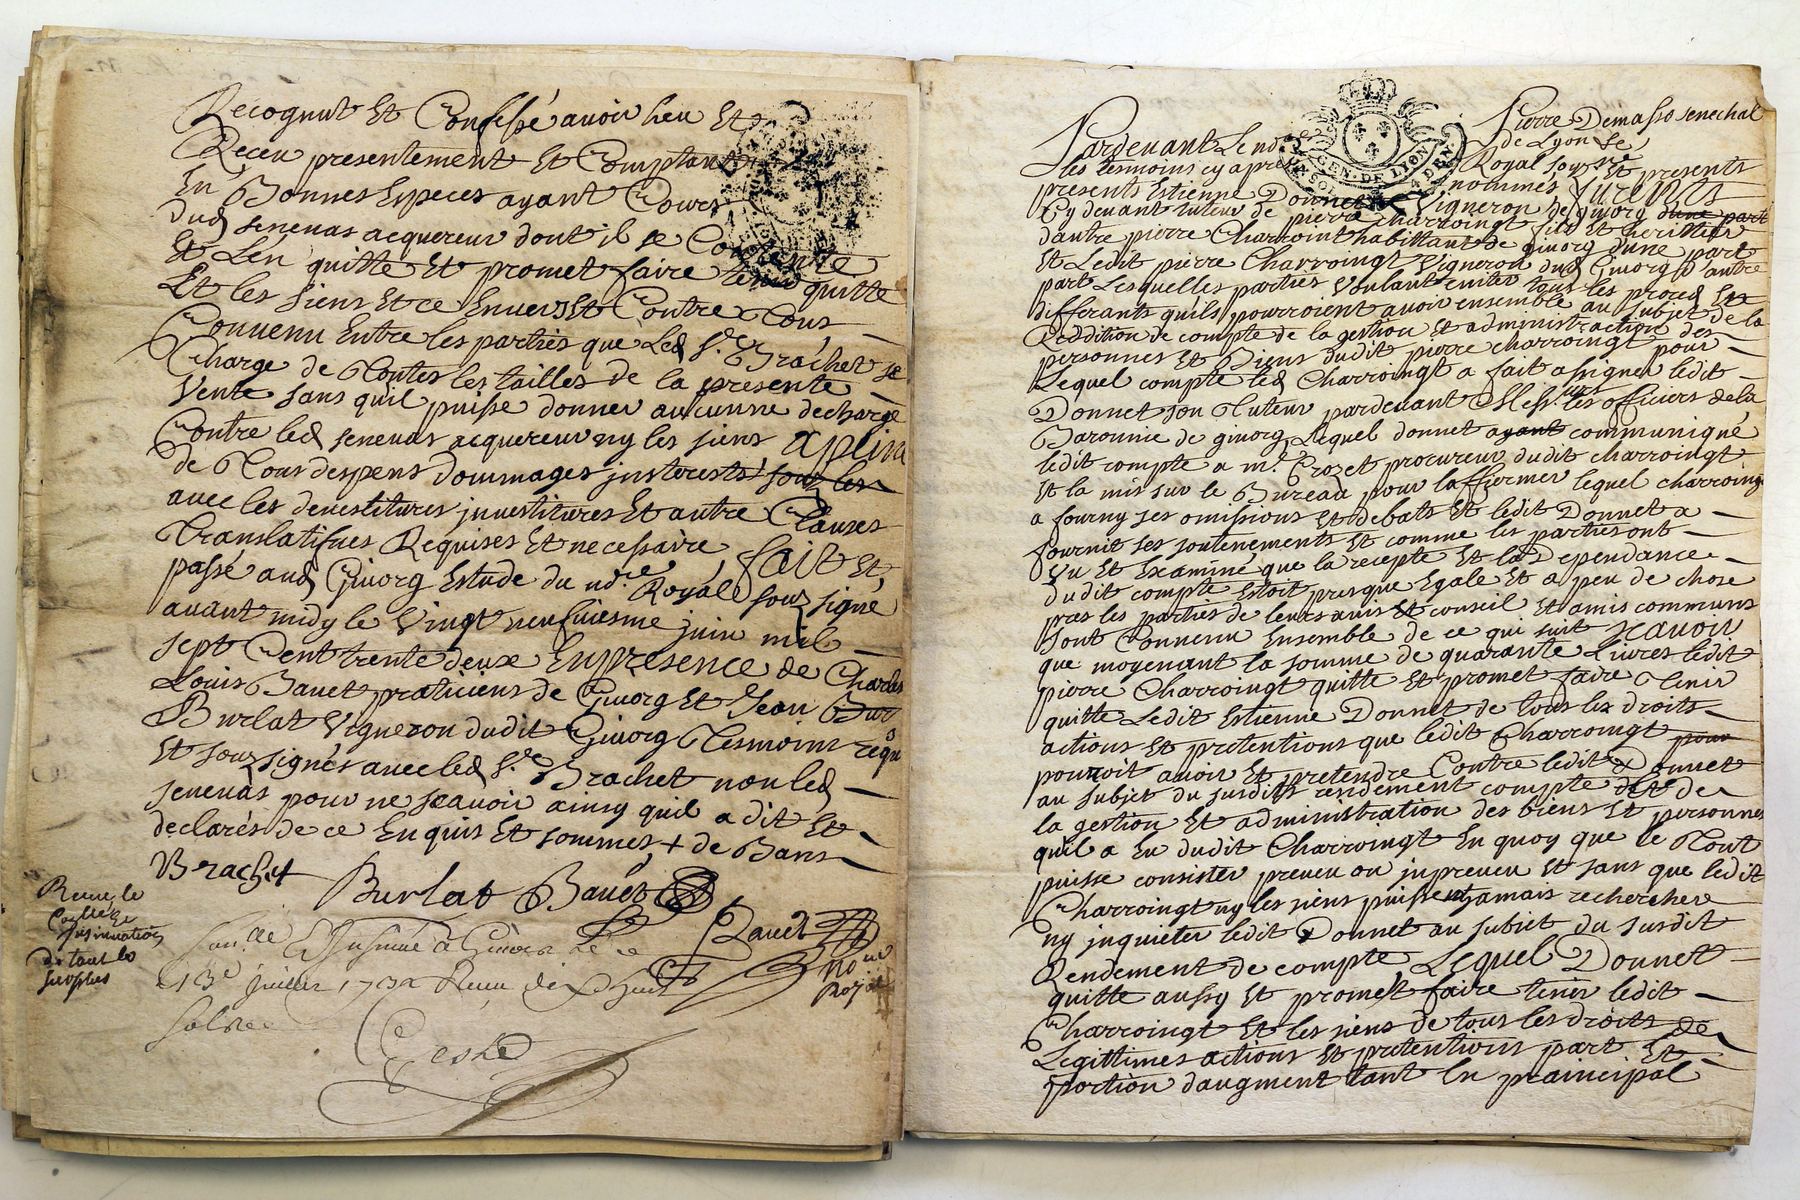 Recognut Et Confessé avoir heu Et
Receu presentement Et Comptant
En Bonnes Especes ayant Cours
dud senevas acquereur dont il se Contente
Et Len quitte Et promet faire tenir quitte
Et les siens Et ce Envers Et Contre Tous
Convenu Entre les parties que Led Sr. Brachet se
Charge de Toutes les tailles de la presente
Vente sans quil puisse donner aucunne decharge
Contre led senevas acquereur ny les siens a plin
de Tous despens dommages justerests sous les
avec les devestitures jnvestitures Et autre Clauses
Translatifves Requises Et necessaire, fait Et
passé aud Givorg Estude du nore. Royal sousz signé
avant midy le Vingt neufviesme juin mil
sept Cent trente deux En presence de Charles
Louis Bavet praticiens de Givorg Et Jean Bur
Burlat Vigneron dudit Givorg Tesmoins requ
Et sousz signés avec led Sr. Brachet non led
senevas pour ne scavoir ainsy quil a dit Et
declarés de ce Enquis Et sommes + de Bans
Brachet Burlat Bavet
Bavet
no Royal
Receu le
insinuation
de tout
Insinué à Givors le
13e juillet 1732 Receu dix
Pardevant Le no Pierre Demasso senechal
de Lyon Le
les tesmoins cy apres Royal
nommés furent presents
presents Estienne Donnet Vigneron de givorg dune part
Cy devant tuteur de pierre charroingt fils Et heritier
dautre pierre Charroint habittant de givorg dune part
Et Ledit pierre Charroingt Vigneron dud Givorg d'autre
part Lesquelles parties Voulant eviter tous les proces Et
differants quils pourroient avoir ensemble au subjet de la
Reddition de compte de la gestion Et administraction des
personnes Et Biens dudit pierre charroingt pour
Lequel compte led Charroingt a fait assigner ledit
Donnet son Tuteur pardevant Messrs. les officiers dela
Baronnie de givorg Lequel donnet ayant communiqué
ledit compte a me. Crozet procureur dudit charroingt
Et la mis sur le Bureau pour laffirmer lequel charroing
a fourny ses omissions Et debats Et ledit Donnet a
fournit ses soutenements Et comme les parties ont
Vu Et Examiné que la recepte Et la Dependance
dudit compte Estoit presque Egale Et a peu de chose
pres les parties de leurs avis Et conseil Et amis communs
sont Convenu Ensemble de ce qui suit scavoir
que moyenant la somme de quarante Livres ledit
pierre Charroingt quitte Et promet faire Tenir
quitte Ledit Estienne Donnet de tous les droits
actions Et pretentions que ledit Charroingt pour
pourroit avoir Et pretendre Contre ledit Donnet
au subjet du susdits rendement compte det de
la gestion Et administration des biens Et personnes
quil a Eu dudit Charroingt En quoy que le Tout
puisse consister preveu ou jnpreveu Et sans que ledit
Charroingt ny les siens puissent jamais rechercher
ny jnquieter ledit Donnet au subjet du susdit
Rendement de compte, Lequel Donnet
quitte aussy Et promet faire tenir ledit
Charroingt Et les siens de tous les droits de
Legittimes actions Et pretentions part Et
portion daugment tant En praincipal